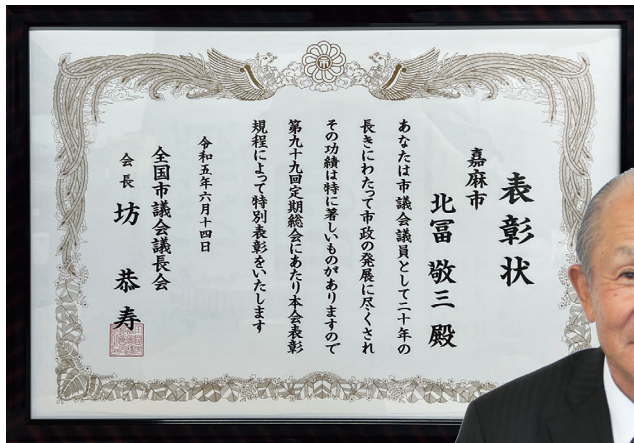 表彰状
嘉麻市
北冨敬三殿
あなたは市議会議員として二十年の
長きにわたって市政の発展に尽くされ
その功績は特に著しいものがありますので
第九十九回定期総会にあたり本会表彰
規程によって特別表彰をいたします
令和五年六月十四日
全国市議会議長会
会長 坊恭寿